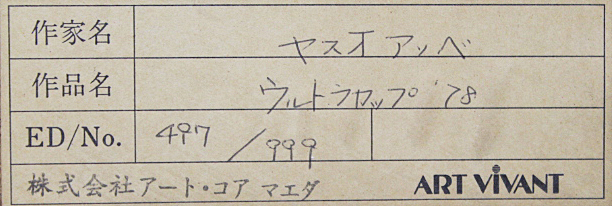 作家名 ヤスオアッベ
作品名 ウルトラカップ '78
ED/No. 497/999
株式会社アート・コア マエダ ART VIVANT